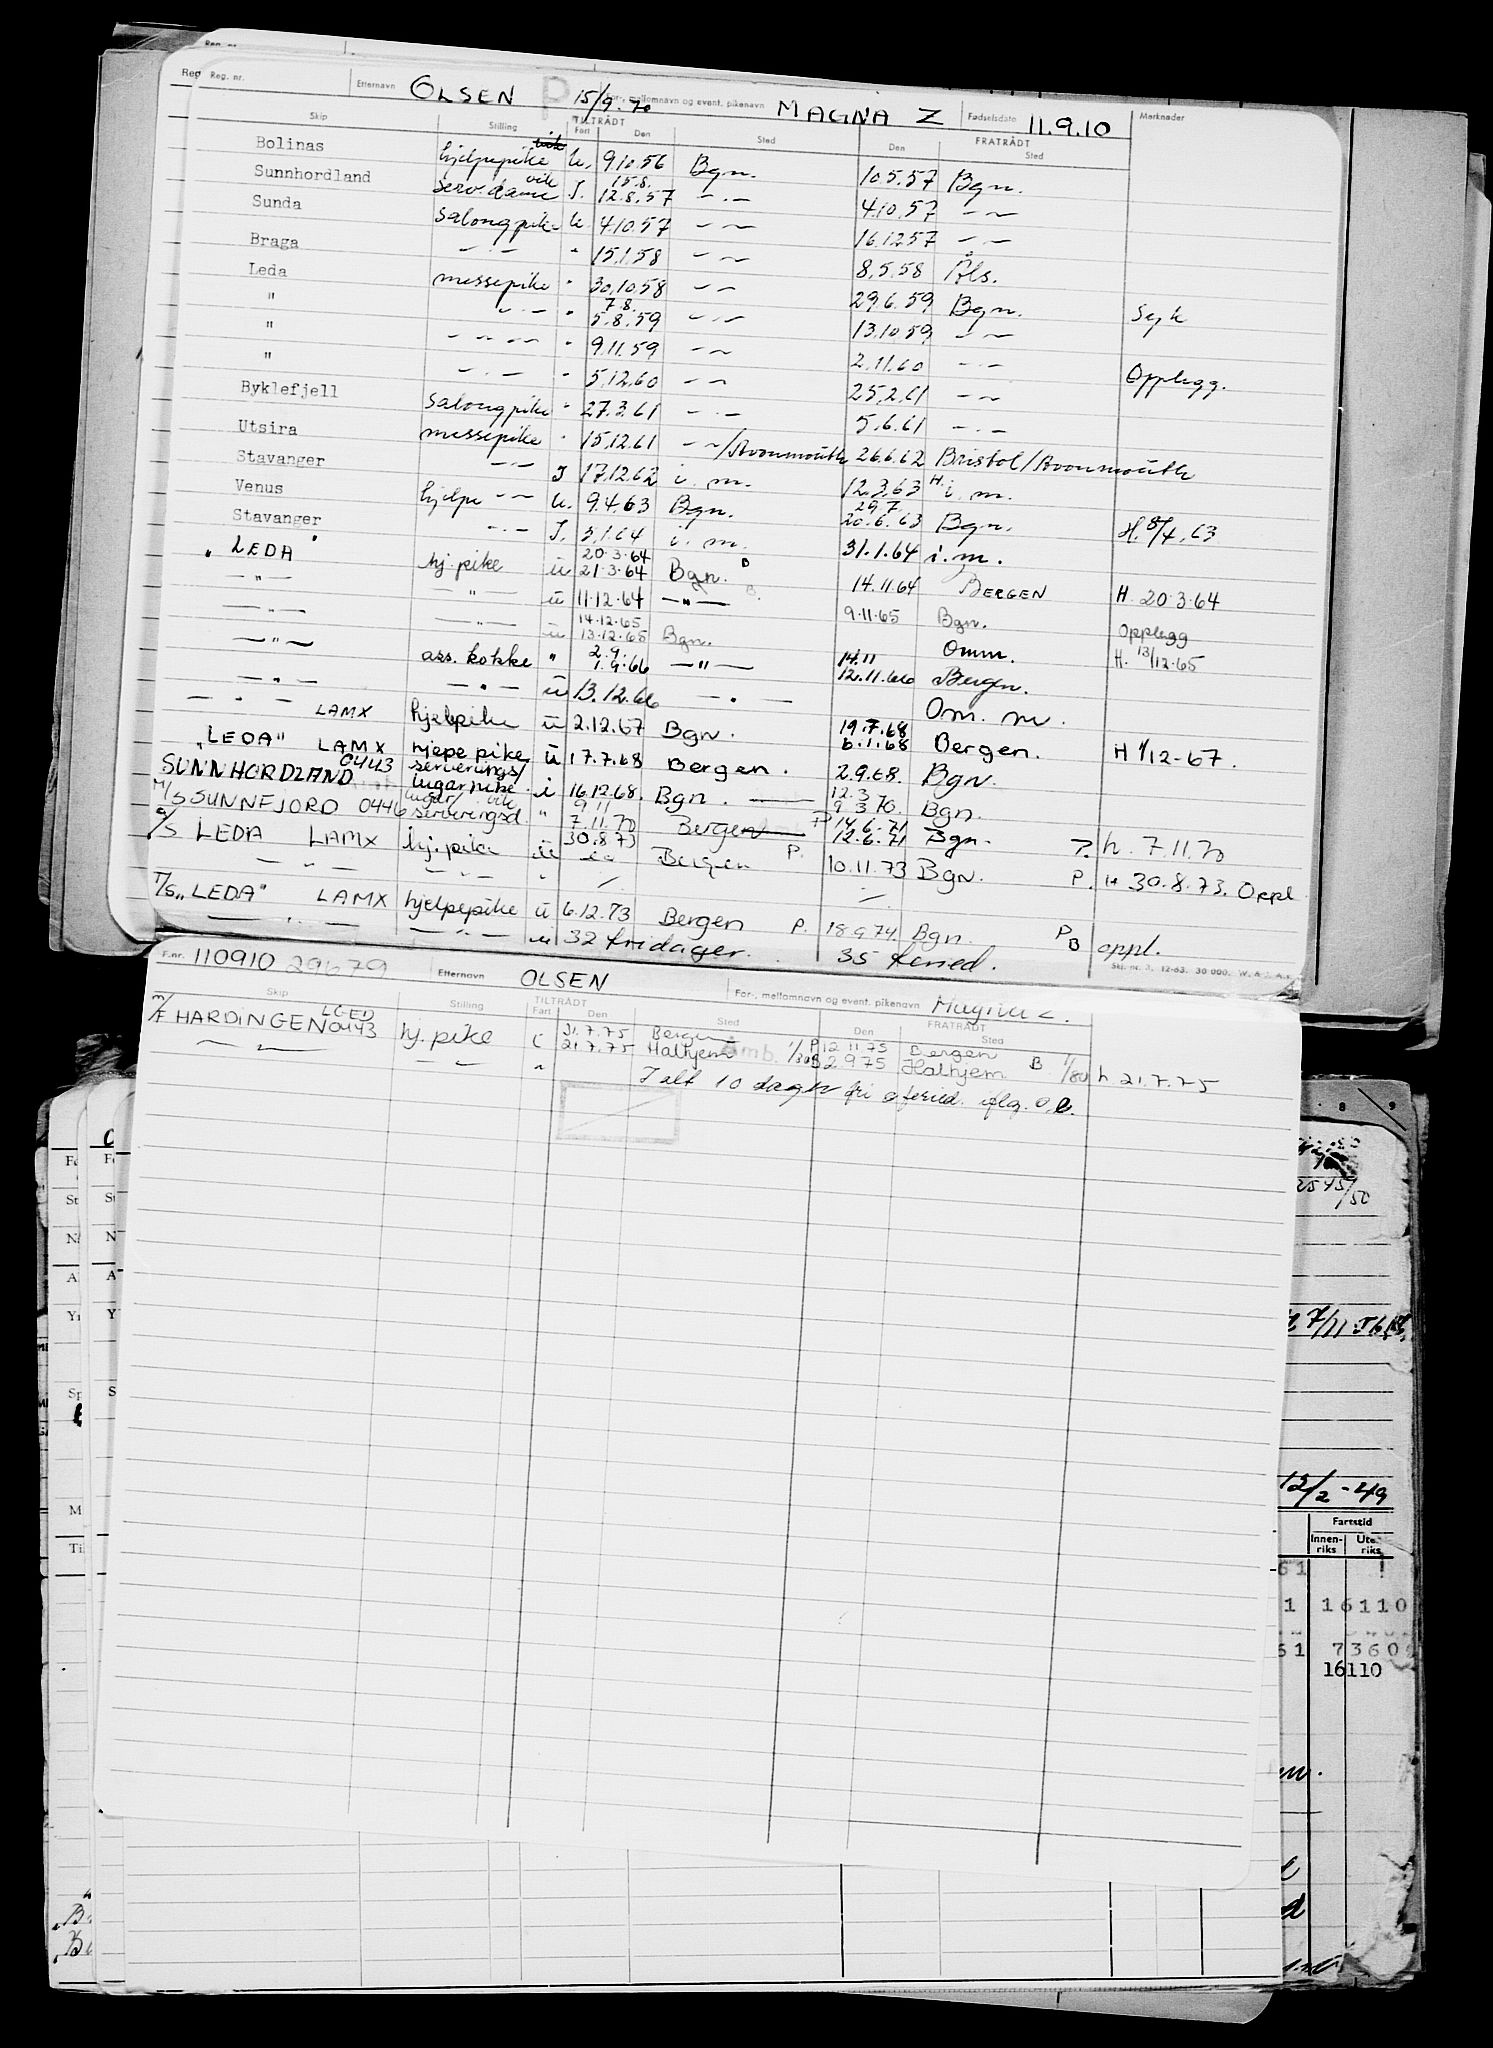 Reg. nr.
Reg Reg. nr. Etternavn OLSEN P 15/9.70 For-, mellomnavn og event. pikenavn MAGNA Z Fødselsdato 11.9.10 Merknader
Skip Stilling Fart TILTRÅDT Den Sted Den FRATRÅDT Sted
Bolinas hjelpepike vik U. 9.10.56 Bgn. 10.5.57 Bgn.
Sunnhordland serv.dame vik I. 15.8. 12.8.57 -.- 4.10.57 -~
Sunda salongpike U. 4.10.57 -~ 16.12.57 -~
Braga -.- " 15.1.58 -~ 8.5.58 Åls.
Leda messepike " 30.10.58 -~ 29.6.59 Bgn. Syk
" -.- " 7.8. 5.8.59 -.- 13.10.59 -~
" - - - - " 9.11.59 -~ 2.11.60 -.- Opplegg.
" -.- " 5.12.60 -~ 25.2.61 -~
Byklefjell salongpike " 27.3.61 -.- 5.6.61 -.-
Utsira messepike " 15.12.61 -~/Avonmouth 26.6.62 Bristol/Avonmouth
Stavanger -~ I 17.12.62 i. m. 12.3.63 H. i. m.
Venus hjelpe -~ U. 9.4.63 Bgn. 29.7 20.6.63 Bgn. H. 8/4.63
Stavanger -.- I. 3.1.64 i. m. 31.1.64 i.m.
" LEDA " hj.pike ü 20.3.64 21.3.64 Bgn. B 14.11.64 BERGEN H. 20.3.64
-"- -"- ü 11.12.64 -"- B. 9.11.65 Bgn. Opplegg
-"- -"- ü 14.12.65 13.12.65 Bgn. Omm. H. 13/12.65
-"- ass. kokke " 2.9. 1.9.66 -"- 14.11 12.11.66 Bergen.
-"- -"- ü 13.12.66 -"- Om. m.
-"- LAMX hjelpepike ü 2.12.67 Bgn. 19.7.68 6.1.68 Bergen. H 1/12-67.
"LEDA" LAMX hjepe pike ü 17.7.68 Bergen. 2.9.68. Bgn.
SUNNHORDLAND 0443 serverings/ lugarpike i 16.12.68. Bgn. 12.3 9.3.70. Bgn.
M/S SUNNFJORD 0446 lugar/ vik serveringsd. " 9.11 7.11.70 Bergen P 14.6.71 12.6.71 Bgn. P. h. 7.11.70
D/S LEDA LAMX hj.pike ü 30.8.73 Bergen P. 10.11.73 Bgn. P. H 30.8.73. Oppl
-"- -"- " ./. ./.
T/S "LEDA" LAMX hjelpepike ü 6.12.73 Bergen P. 18.9.74. Bgn. P B oppl.
-"- -"- ü 32 fridager. 35 feried.
Skj. nr. 3. 12-63. 30 000. W. & J. A.s.
F.nr. 110910 29679 Etternavn OLSEN For-, mellomnavn og event. pikenavn Magna Z.
Skip Stilling Fart TILTRÅDT Den Sted Den FRATRÅDT Sted
M/F HARDINGEN LGED 0443 hj. pike i 31.7.75 Bergen P 12.11.75 Bergen
-"- 21.7.75 Halhjem 2.9.75 Halhjem B 1/80 h 21.7.75
-"- " I alt 10 dager fri o feried. iflg. o.b.
8 9
2545/50
7/11
12/2-49
Fartstid
Innen-riks Uten-riks
61
1 16110
61 7360
16110